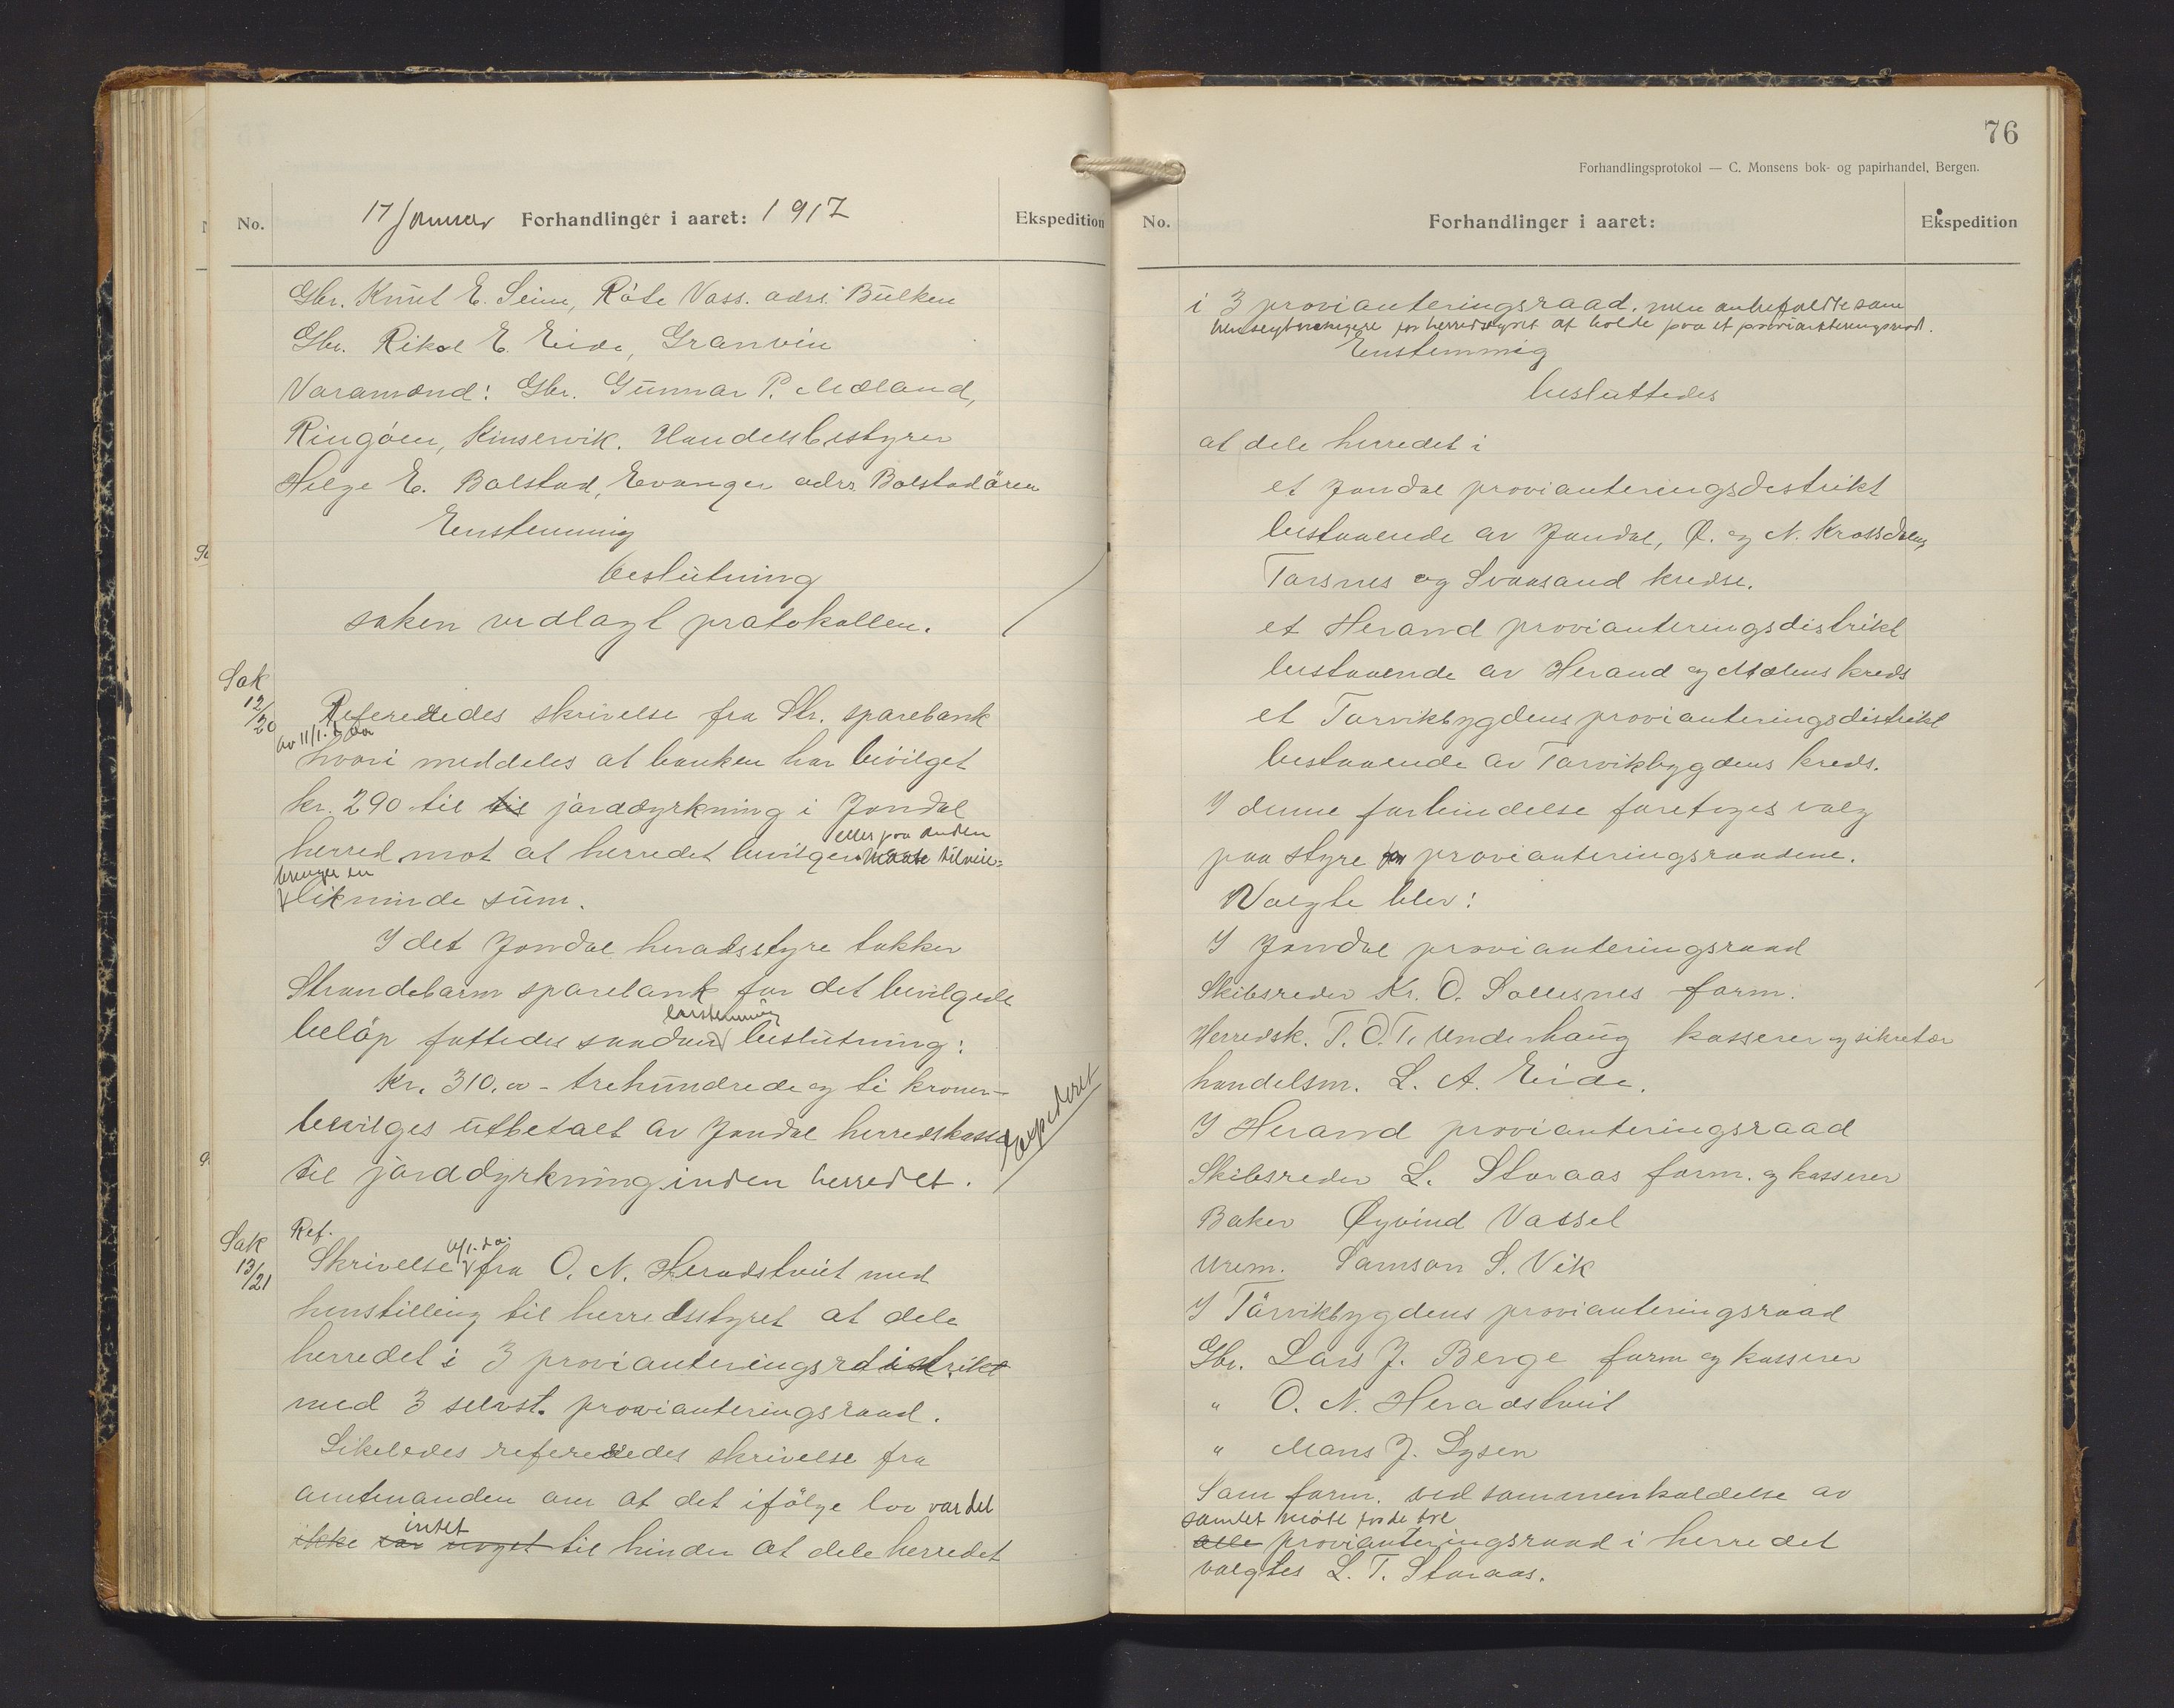 No.
17 Januar Forhandlinger i aaret: 1917
Ekspedition
Gbr. Knut E. Seim, Røte Voss. adrs. Bulken
Gbr. Rikol E. Eide, Granvin
Varamænd: Gbr. Gunnar P. Mæland,
Ringøen, Kinservik. Handelsbestyrer
Helge E. Bolstad, Evanger adrs. Bolstadøren
Enstemmig
beslutning
saken vedlagt protokollen.
Sak
12/20
Refereredes skrivelse fra Str. sparebank
av 11/1. d. aa
hvori meddeles at banken har bevilget
kr. 290 til til jorddyrkning i Jondal
eller paa anden
herred mot at herredet bevilger maate tilveie-
bringer en
likeninde sum.
I det Jondal heradsstyre takker
Strandebarm sparebank for det bevilgede
enstemmig
beløp fattedes saadan beslutning:
Kr. 310.00 - trehundrede og ti kroner -
bevilges utbetalt av Jondal herredskasse
til jorddyrkning inden herredet.
Expederet
Sak
13/21
Ref.
6/1. d. a.
Skrivelse fra O. N. Heradstveit med
henstilling til herredsstyret at dele
herredet i 3 provianteringsrdistrikt
med 3 selvst. provianteringsraad.
Likeledes refereredes skrivelse fra
amtmanden om at det ifølge lov var det
intet
ikke var noget til hinder at dele herredet
76
Forhandlingsprotokol — C. Monsens bok- og papirhandel, Bergen.
No.
Forhandlinger i aaret:
Ekspedition
i 3 provianteringsraad. men anbefaldte som
for herredsstyret at holde paa et provianteringsraad.
Enstemmig
besluttedes
at dele herredet i
et Jondal provianteringsdistrikt
bestaaende av Jondal, Ø. og N. Krossdalen,
Torsnes og Svaasand kredse.
et Herand provianteringsdistrikt
bestaaende av Herand og Mælens kreds
et Torvikbygdens provianteringsdistrikt
bestaaende av Torvikbygdens kreds.
I denne forbindelse foretoges valg
paa styre for provianteringsraadene.
Valgte blev:
I Jondal provianteringsraad
Skibsreder Kr. O. Sollesnes form.
Herredsk. T. O. T. Underhaug kasserer og sikretær
handelsm. L. A. Eide.
I Herand provianteringsraad
Skibsreder L. Storaas form. og kasserer
Baker Øyvind Vassel
Urem. Samson S. Vik
I Törvikbygdens provianteringsraad
Gbr. Lars J. Berge form og kasserer
" O. N. Heradstveit
" Mons J. Lysen
Som form. ved sammenkaldelse av
samlet møte for de tre
alle provianteringsraad i herredet
valgtes L. T. Storaas.